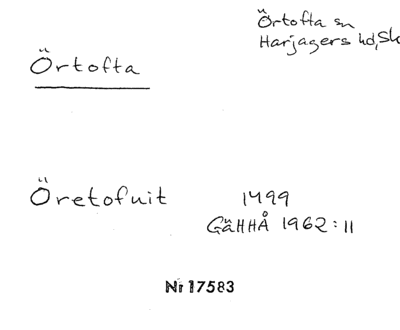 Örtofta sn
Harjagers hd, Sk
Örtofta
Öretofuit 1499
GäHHÅ 1962:11
Nr 17583